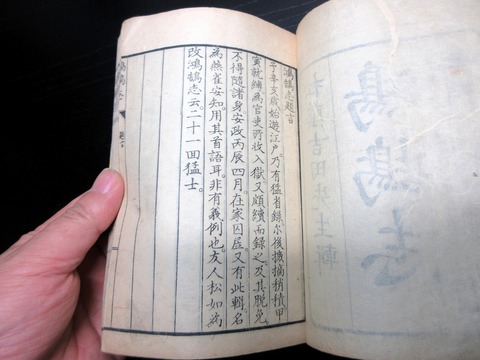 鴻鵠志題言
予辛亥歳始遊江戸乃有猛省錄尔後摭摘稍積甲
寅就縛為官吏所收入獄又頗續而録之及其脱免
不得隨諸身安政丙辰四月在家囚居又有此輯名
為燕雀安知用其首語耳非有義例也友人松如為
改鴻鵠志云二十一回猛士
鴻鵠志